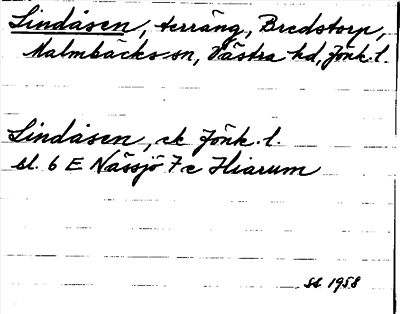 Lindåsen, terräng, Bredstorp,
Malmbäcks sn, Västra hd, Jönk. l.
Lindåsen, ek Jönk. l.
bl. 6 E Nässjö 7 c Hiarum
SS 1958